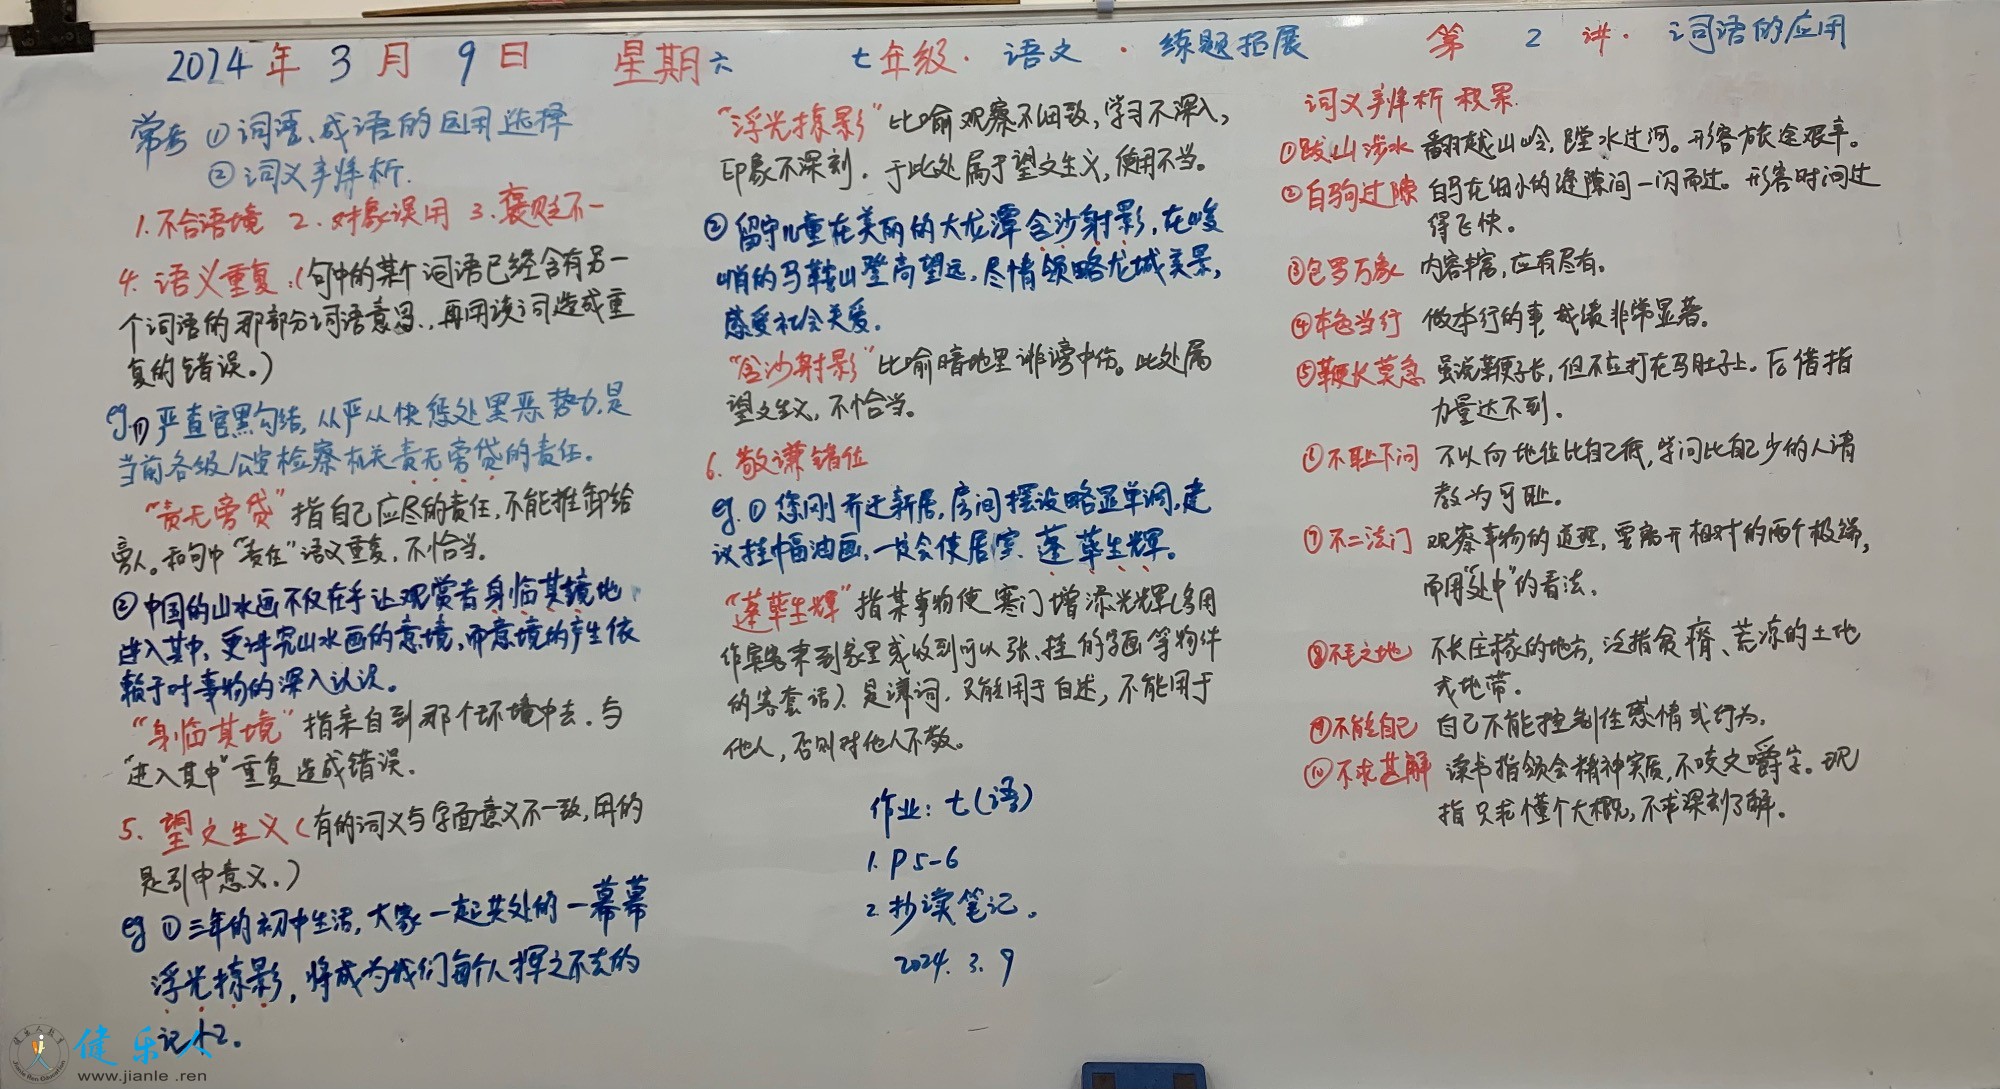 2024年3月9日 星期六 七年级·语文·练题拓展 第2讲·词语的应用
常考 ①词语、成语的运用选择
②词义辨析.
1.不合语境 2.对象误用 3.褒贬不一
4.语义重复:(句中的某个词语已经含有另一
个词语的那部分词语意思,再用该词造成重
复的错误。)
eg.①严查官黑勾结,从严从快惩处黑恶势力,是
当前各级公安检察机关责无旁贷的责任。
“责无旁贷”指自己应尽的责任,不能推卸给
旁人。和句中“责任”语义重复,不恰当。
②中国的山水画不仅在乎让观赏者身临其境地
进入其中,更讲究山水画的意境,而意境的产生依
赖于对事物的深入认识。
“身临其境”指亲自到那个环境中去.与
“进入其中”重复造成错误.
5.望文生义(有的词义与字面意义不一致,用的
是引申意义.)
eg ①三年的初中生活,大家一起共处的一幕幕
浮光掠影,将成为我们每个人挥之不去的
记忆.
“浮光掠影”比喻观察不细致,学习不深入,
印象不深刻.于此处属于望文生义,使用不当。
②留守儿童在美丽的大龙潭含沙射影,在峻
峭的马鞍山登高望远,尽情领略龙城美景,
感受社会关爱.
“含沙射影”比喻暗地里诽谤中伤。此处属
望文生义,不恰当。
6.敬谦错位
eg.①您刚乔迁新居,房间摆设略显单调,建
议挂幅油画,一定会使居室蓬荜生辉。
“蓬荜生辉”指某事物使寒门增添光辉(多用
作宾客来到家里或收到可以张、挂的字画等物件
的客套话).是谦词.只能用于自述,不能用于
他人,否则对他人不敬。
作业:七(语)
1.P5-6
2.抄读笔记.
2024.3.9
词义辨析积累.
①跋山涉水 翻越山岭,蹚水过河。形容旅途艰辛。
②白驹过隙 白马在细小的缝隙间一闪而过。形容时间过
得飞快。
③包罗万象 内容丰富,应有尽有。
④本色当行 做本行的事,成绩非常显著。
⑤鞭长莫急 虽说鞭子长,但不应打在马肚子上。后借指
力量达不到.
⑥不耻下问 不以向地位比自己低,学问比自己少的人请
教为可耻。
⑦不二法门 观察事物的道理,要离开相对的两个极端,
而用“处中”的看法.
⑧不毛之地 不长庄稼的地方,泛指贫瘠、荒凉的土地
或地带.
⑨不能自已 自己不能控制住感情或行为.
⑩不求甚解 读书指领会精神实质,不咬文嚼字。现
指只求懂个大概,不求深刻了解.
健乐人
www.jianle .ren